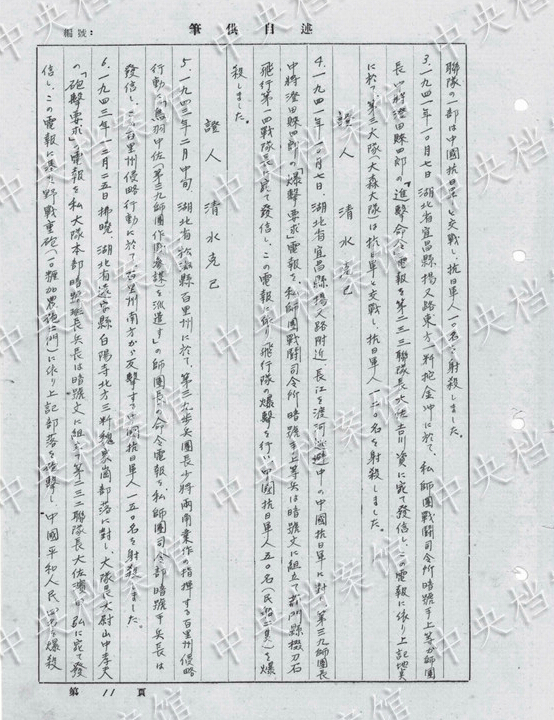 筆供自述
編號：
聯隊の一部は中國抗日軍と交戰し、抗日軍人一〇名を射殺しました。
3.一九四一年一〇月七日、湖北省宜昌縣楊叉路東方一粁地金冲に於て、私師團戰鬪司令所暗號手上等兵師團
長中將澄田睞四郎の「進擊命令」電報を第二三三聯隊長大佐吉川資に宛て發信し、この電報に依り上記地點
に於て第三大隊(大森大隊)は抗日軍と交戰し、抗日軍人一二〇名を射殺しました。
證人 清水克己
4.一九四一年一〇月七日、湖北省宜昌縣楊叉路附近、長江を渡河逃避中の中國抗日軍に對し、第三九師團長
中將澄田睞四郎の「爆擊要求」電報を、私師團戰鬪司令所暗號手上等兵は暗號文に組立て荊門縣掇刀石
飛行第一四戰隊長に宛て發信し、この電報に依り飛行隊の爆擊を行い、中國抗日軍人五〇名を爆
殺しました。
證人 清水克己
5.一九四三年二月中旬、湖北省松滋縣百里州に於て、第三九步兵團長少將雨南業作の指揮する百里州侵略
行動に「鳥羽中佐(第三九師團作戰參謀)を派遣す」の師團長の命令電報を、私師團司令部暗號手兵長は
發信し、この百里州侵略行動に於て百里州南方から反擊する中國抗日軍人一五〇名を射殺しました。
6.一九四三年一二月二五日拂曉、湖北省遠安縣白陽寺北方三粁部落に對し、大隊長大尉山中孝夫
の「砲擊要求」の電報を私大隊本部暗號班長兵長は暗號文に組立て第二三二聯隊長大佐に宛て發
信し、この電報に基き野戰重砲(一〇糎加農砲二門)に依り上記部落を砲擊し、中國平和人民 名を爆殺
第 11 頁
中央档案馆